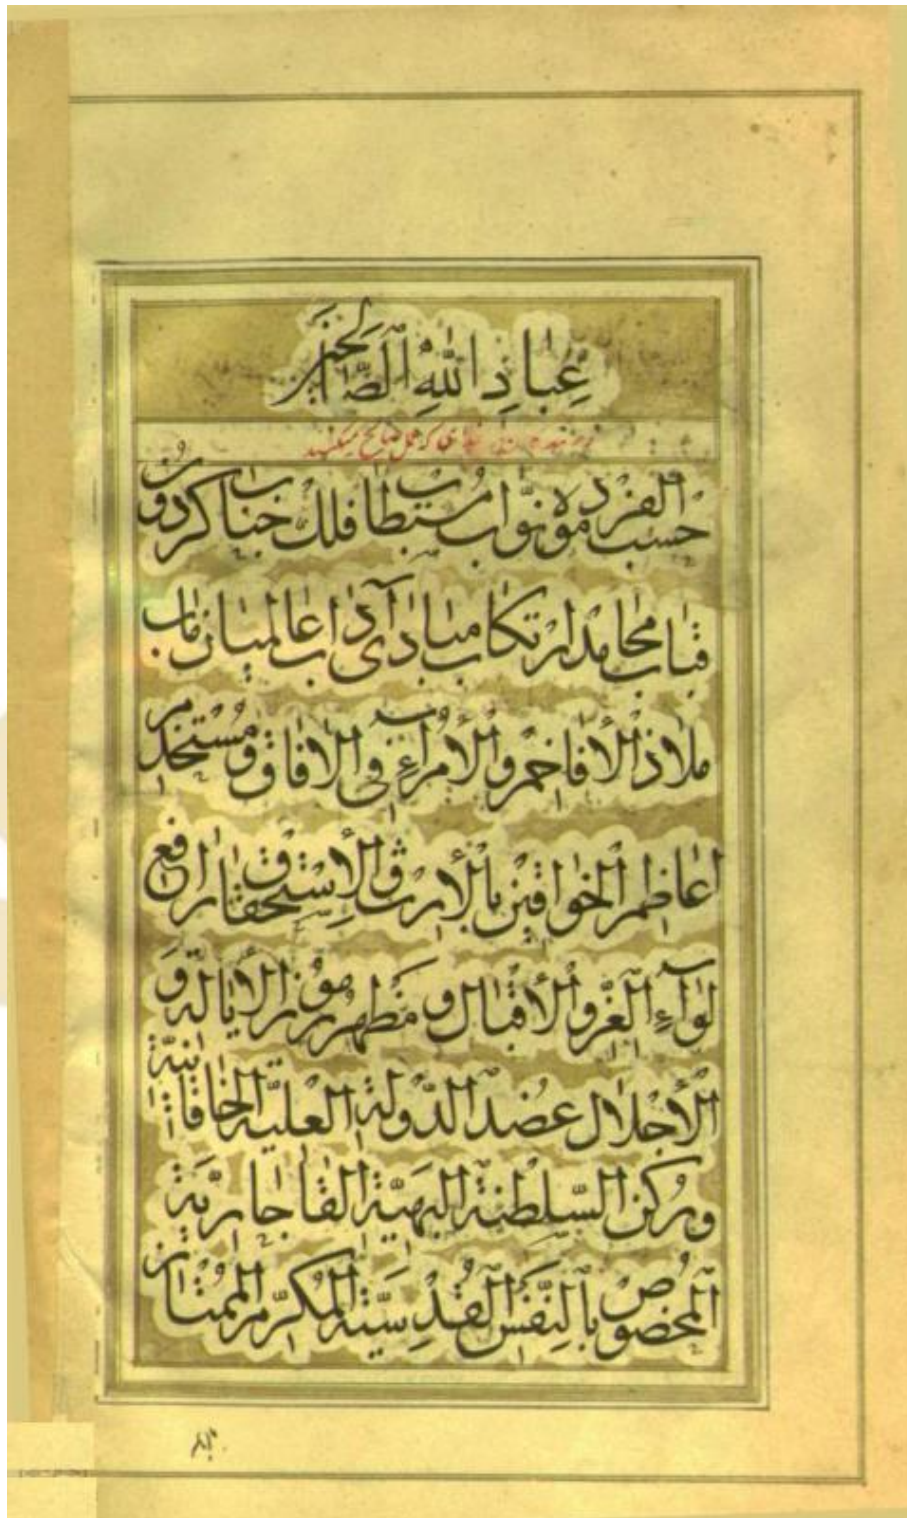 عِبادِ اللهِ الصّالحین
حسب الفرموده نواب مستطاب فلک جناب کردون
قباب محامد ارتکاب مبادی آداب عالمیان مآب
ملاذ الأفاخم و الأمراءِ فی الافاق و مستخدم
اعاظم الخواقین بالارث و الإستحقاق رافع
لوآءِ العز و الأقبال و مظهر رموز الایاله و
الأجلال عضد الدّولة العلیّة الخاقانیّة
و رکن السّلطنة البهیّة القاجاریّة
المخصوص بالنفس القدسیّة المکرّم الممتاز